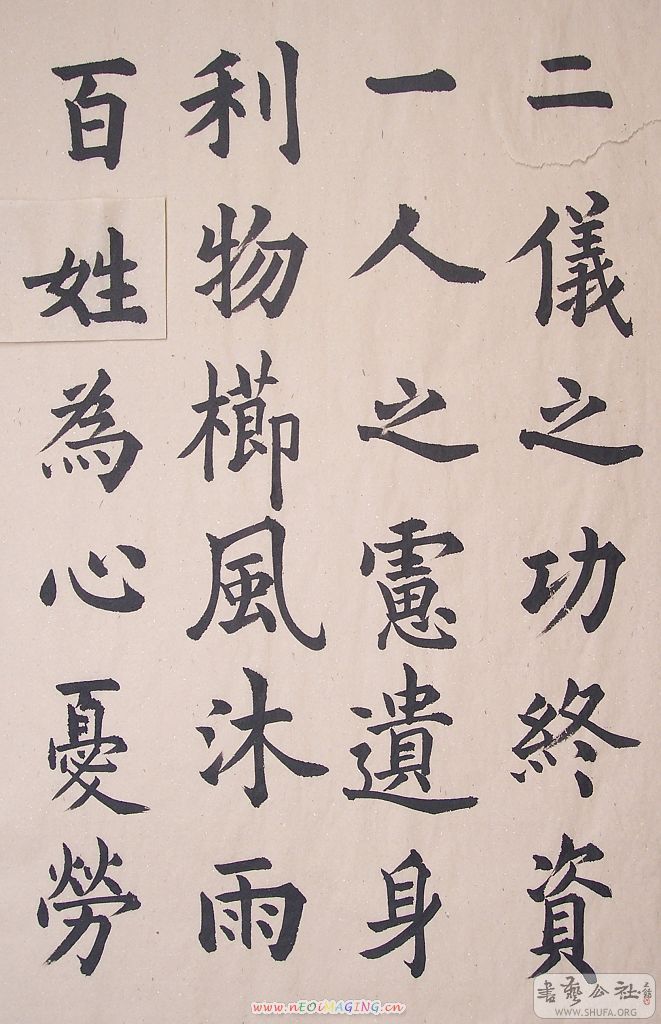 二儀之功終資
一人之慮遺身
利物櫛風沐雨
百姓為心憂勞
www.nEOiMAGING.cn
書藝公社
WWW.SHUFA.ORG